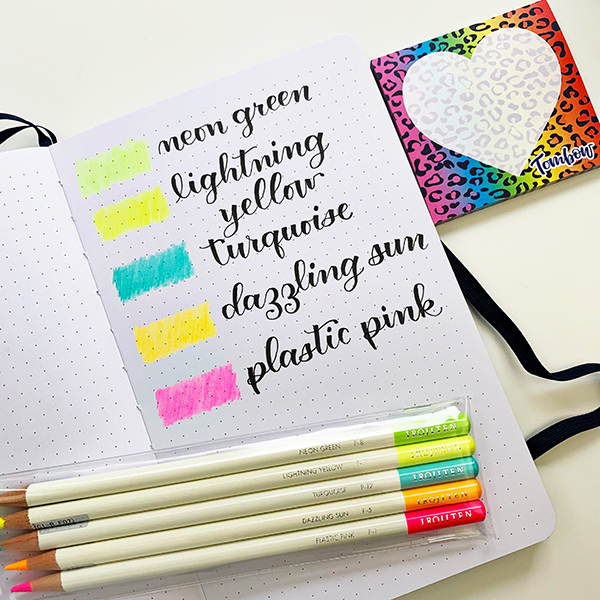 neon green
lightning
yellow
turquoise
dazzling sun
plastic pink
Tombow
NEON GREEN F-6
LIGHTNING YELLOW
TURQUOISE
DAZZLING SUN F-5
PLASTIC PINK
IROJITEN
IROJITEN
IROJITEN
IROJITEN
IROJITEN